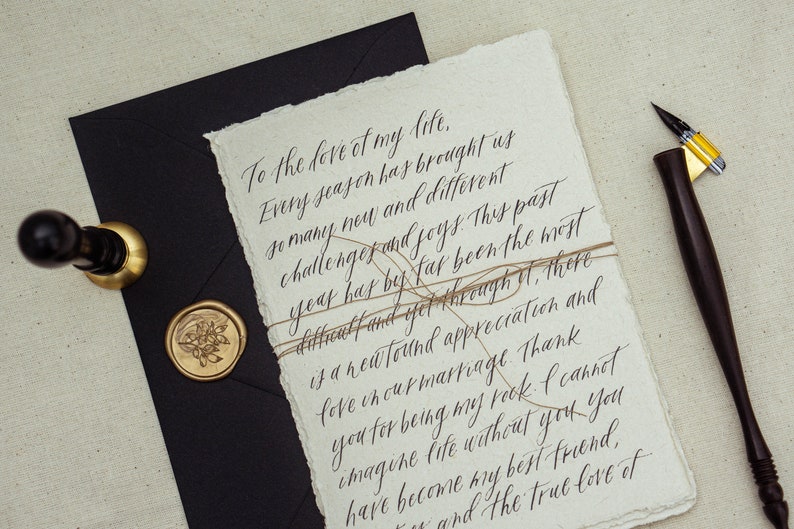 To the love of my life,
Every season has brought us
so many new and different
challenges and joys. This past
year has by far been the most
difficult and yet through it, there
is a newfound appreciation and
love in our marriage. Thank
you for being my rock. I cannot
imagine life without you. You
have become my best friend,
and the true love of